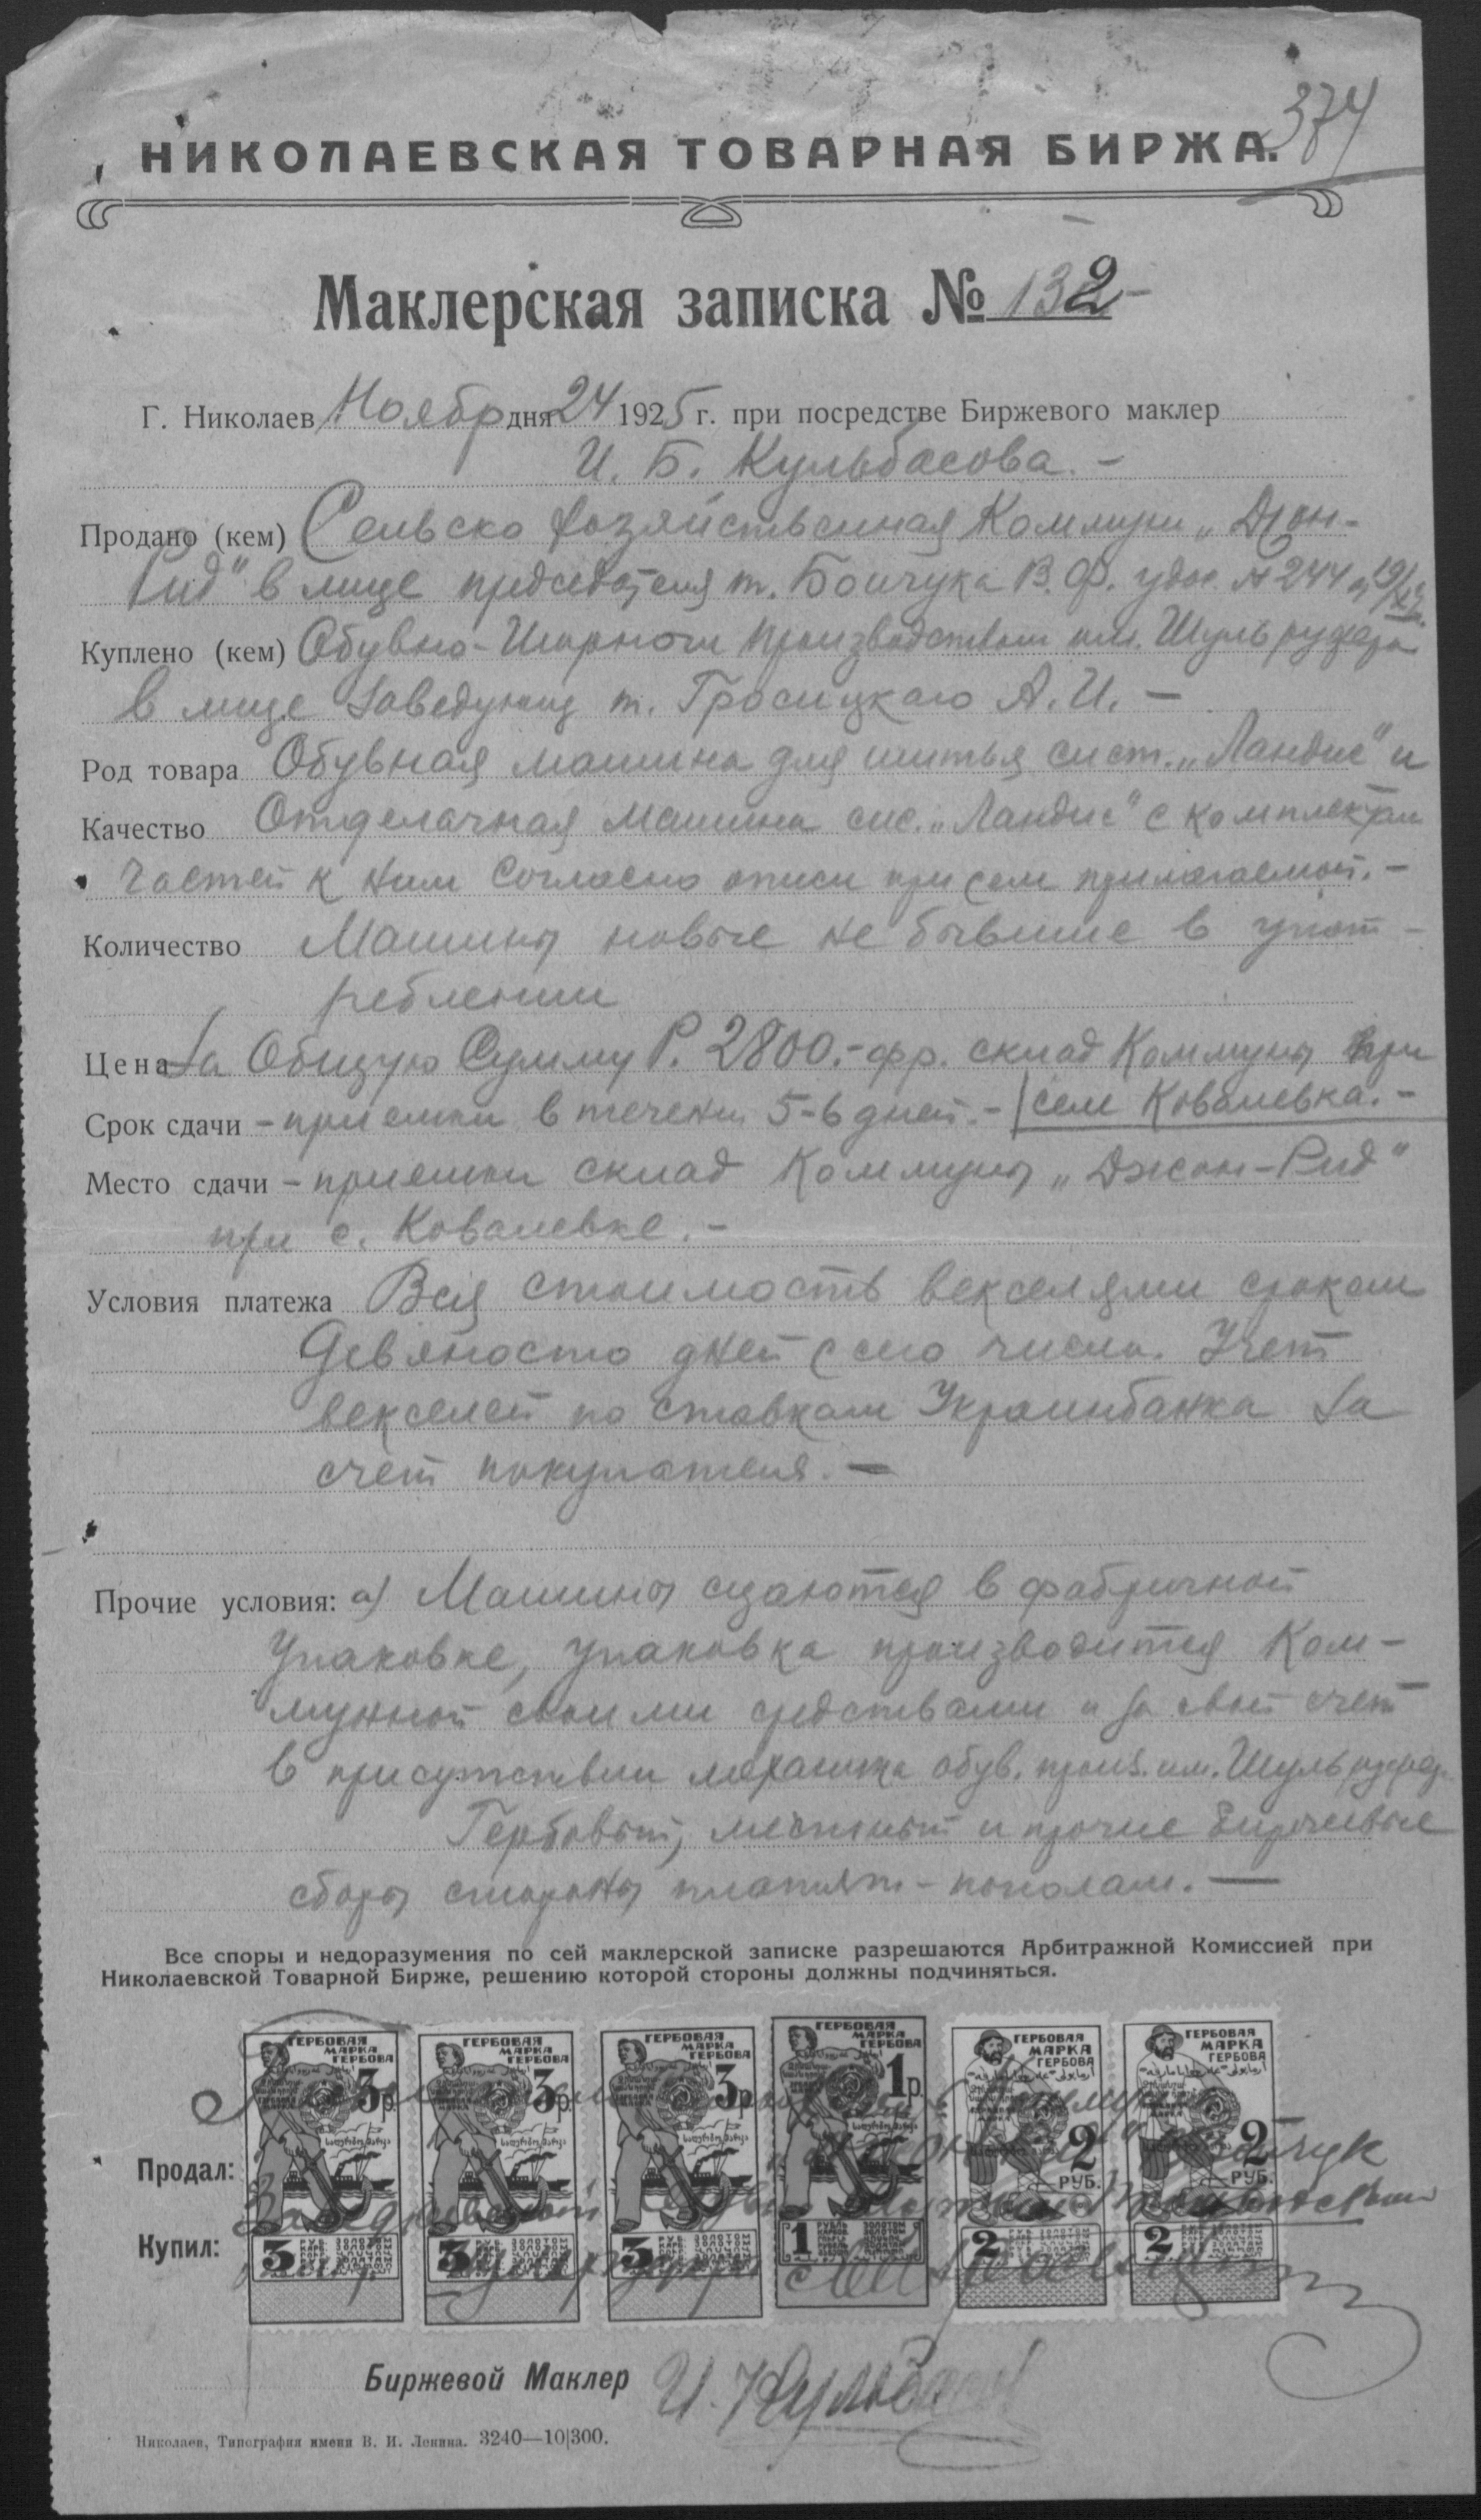 374
НИКОЛАЕВСКАЯ ТОВАРНАЯ БИРЖА.
Маклерская записка № 132-
Г. Николаев Ноябр дня 24 1925 г. при посредстве Биржевого маклер
И. Б. Кульбасова. -
Продано (кем) Сельско Хозяйственная Коммун „Джон-
Рид" в лице председателя т. Бойчука В. Ф. удос. № 244
Куплено (кем) Обувно-Шорном производством им.
в лице Заведующ т. А. И. -
Род товара Обувная машина для шитья сист. „Ландис" и
Качество Отделачная машина сис. „Ландис" с комплектам
Частей к ним согласно описи при сем прилагаемой. -
Количество Машины новые не бывшие в упот-
реблении
Цена За Общую Сумму Р. 2800.- фр. склад Коммуны при
Срок сдачи - приемки в течении 5-6 дней. - селе Ковалевка. -
Место сдачи - приемки склад Коммуны „Джон-Рид"
при с. Ковалевке. -
Условия платежа Вся стоимость векселями сроком
Девяносто дней с сего числа. Учет
векселей по ставкам Украинбанка За
счет покупателя. -
Прочие условия: а) Машины сдаются в фабричной
Упаковке, упаковка производится Ком-
муной своими средствами и за свой счет
в присутствии механика обув. произ. им.
Гербовый, местный и прочие Биржевые
сборы стороны платят - пополам. -
Все споры и недоразумения по сей маклерской записке разрешаются Арбитражной Комиссией при
Николаевской Товарной Бирже, решению которой стороны должны подчиняться.
ГЕРБОВАЯ МАРКА ГЕРБОВА 3р. ГЕРБОВАЯ МАРКА ГЕРБОВА 3р. ГЕРБОВАЯ МАРКА ГЕРБОВА 3р. ГЕРБОВАЯ МАРКА ГЕРБОВА 1р. ГЕРБОВАЯ МАРКА ГЕРБОВА 2 РУБ. ГЕРБОВАЯ МАРКА ГЕРБОВА 2 РУБ.
Продал:
Купил:
3 3 3 1 2 2
Биржевой Маклер И. Кульбасов
Николаев, Типография имени В. И. Ленина. 3240—10|300.